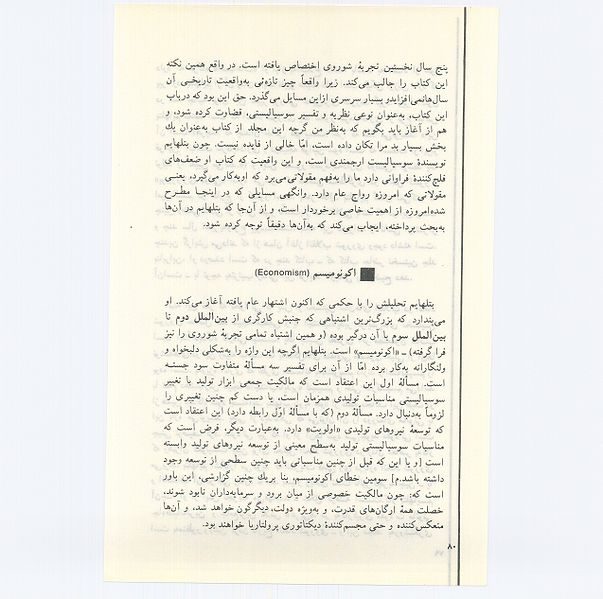 پنج سال نخستین تجربهٔ شوروی اختصاص یافته است. در واقع همین نکته
این کتاب را جالب می‌کند. زیرا واقعاً چیز تازه‌ئی به‌واقعیت تاریخی آن
سال‌هانمی‌افزایدو بسیار سرسری ازاین مسایل می‌گذرد. حق این بود که درباب
این کتاب، به‌عنوان نوعی نظریه و تفسیر سوسیالیستی، قضاوت کرده شود، و
هم از آغاز باید بگویم که به‌نظر من گرچه این مجلد از کتاب به‌عنوان یك
بخش بسیار بد مرا تکان داده است، امّا خالی از فایده نیست. چون بتلهایم
نویسندهٔ سوسیالیست ارجمندی است، و این واقعیت که کتاب او ضعف‌های
فلج‌کنندهٔ فراوانی دارد ما را به‌فهم مقولاتی‌می‌برد که اوبه‌کار می‌گیرد، یعنـی
مقولاتی که امروزه رواج عام دارد. وانگهی مسایلی که در اینجـا مطـرح
شده‌امروزه از اهمیت خاصی برخوردار است، و از آن‌جا که بتلهایم در آن‌ها
به‌بحث پرداخته، ایجاب می‌کند که به‌آن‌ها دقیقاً توجه کرده شود.
اکونومیسم (Economism)
بتلهایم تحلیلش را با حکمی که اکنون اشتهار عام یافته آغاز می‌کند. او
می‌پندارد که بزرگ‌ترین اشتباهی که جنبش کارگری از بین‌الملل دوم تا
بین‌الملل سوم با آن درگیر بوده (و همین اشتباه تمامی تجربهٔ شوروی را نیز
فرا گرفته) ـ «اکونومیسم» است. بتلهایم اگرچه این واژه را به‌شکلی دلبخواه و
ولنگارانه به‌کار برده امّا از آن برای تفسیر سه مسألهٔ متفاوت سود جستـه
است. مسألهٔ اول این اعتقاد است که مالکیت جمعی ابزار تولید با تغییر
سوسیالیستی مناسبات تولیدی همزمان است، یا دست کم چنین تغییری را
لزوماً به‌دنبال دارد. مسألهٔ دوم (که با مسألهٔ اوّل رابطه دارد) این اعتقاد است
که توسعهٔ نیروهای تولیدی «اولویت» دارد. به‌عبارت دیگر، فرض است که
مناسبات سوسیالیستی تولید به‌سطح معینی از توسعه نیروهای تولید وابسته
است [و یا این که قبل از چنین مناسباتی باید چنین سطحی از توسعه وجود
داشته باشد.م] سومین خطای اکونومیسم، بنا بریك چنین گزارشی، این باور
است که: چون مالکیت خصوصی از میان برود و سرمایه‌داران نابود شوند،
خصلت همهٔ ارگان‌های قدرت، و به‌ویژه دولت، دیگرگون خواهد شد، و آن‌ها
منعکس‌کننده و حتی مجسم‌کنندهٔ دیکتاتوری پرولتاریا خواهند بود.
۸۰